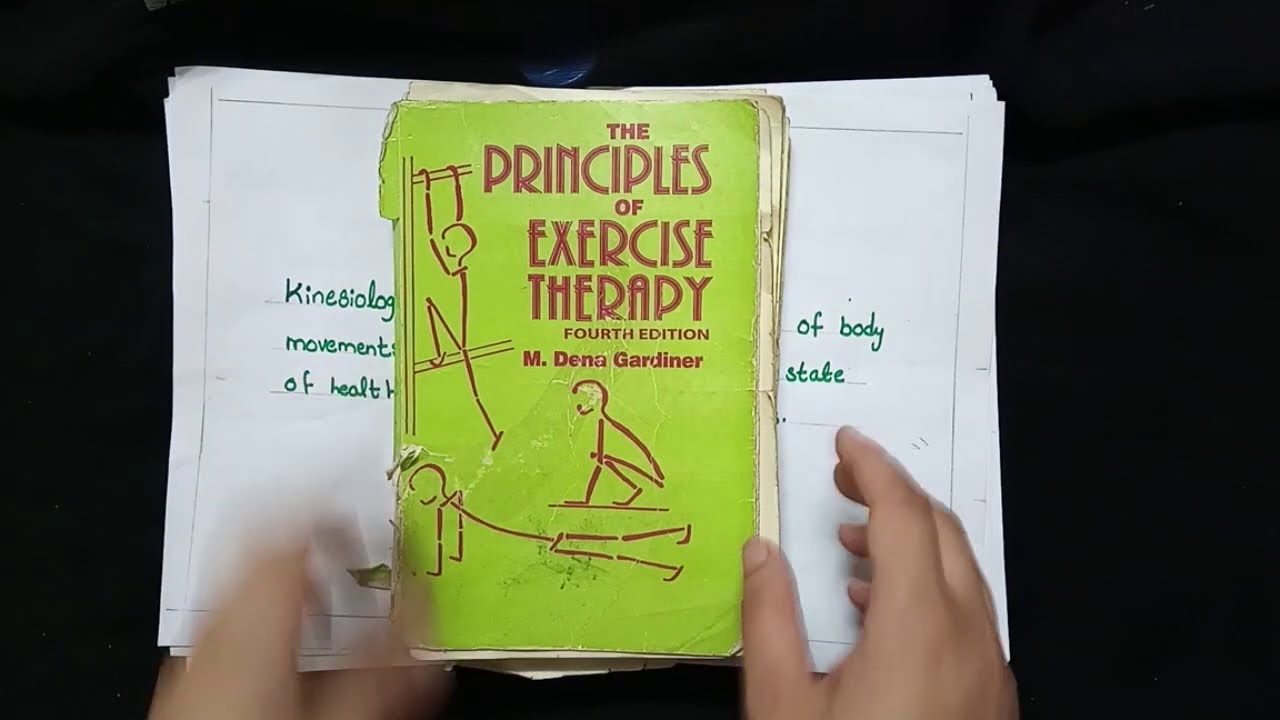 THE
PRINCIPLES
OF
EXERCISE
THERAPY
FOURTH EDITION
M. Dena Gardiner
Kinesiolog of body
movements
of health state